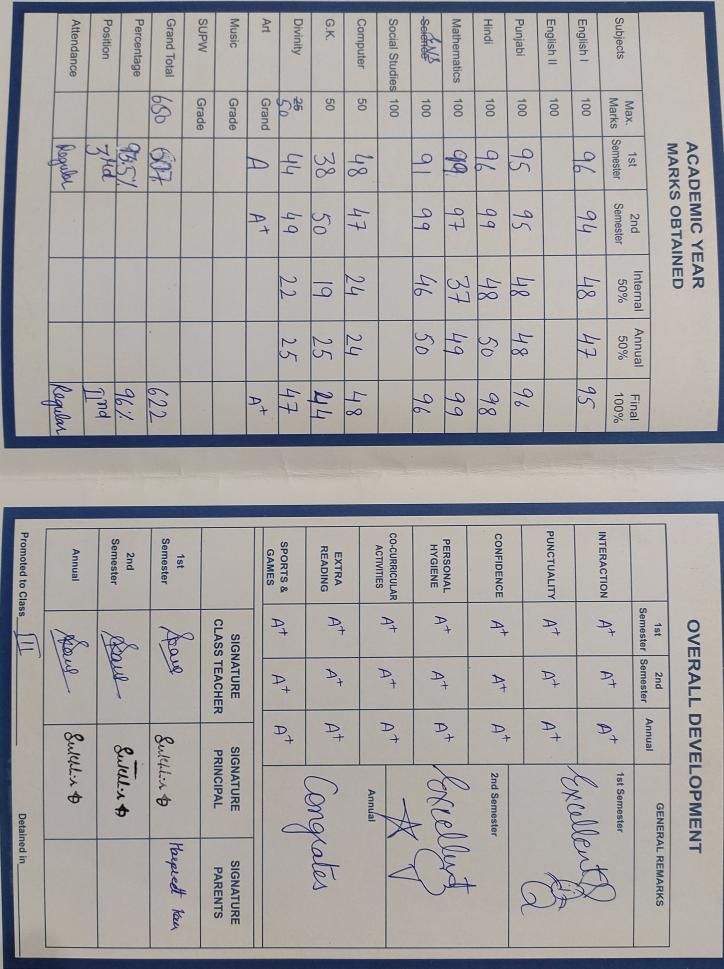 ACADEMIC YEAR
MARKS OBTAINED
Subjects Max. Marks 1st Semester 2nd Semester Internal 50% Annual 50% Final 100%
English I 100 96 94 48 47 95
English II 100
Punjabi 100 95 95 48 48 96
Hindi 100 96 99 48 50 98
Mathematics 100 99 97 37 49 99
Science 100 91 99 46 50 96
Social Studies 100
Computer 50 48 47 24 24 48
G.K. 50 38 50 19 25 44
Divinity 25 50 44 49 22 25 47
Art Grand A A+ A+
Music Grade
SUPW Grade
Grand Total 650 607 622
Percentage 93.5% 96%
Position 3rd IInd
Attendance Regular Regular
OVERALL DEVELOPMENT
1st Semester 2nd Semester Annual GENERAL REMARKS
INTERACTION A+ A+ A+
PUNCTUALITY A+ A+ A+
CONFIDENCE A+ A+ A+
PERSONAL HYGIENE A+ A+ A+
CO-CURRICULAR ACTIVITIES A+ A+ A+
EXTRA READING A+ A+ A+
SPORTS & GAMES A+ A+ A+
1st Semester
Excellent
2nd Semester
Excellent
Annual
Congrates
SIGNATURE CLASS TEACHER SIGNATURE PRINCIPAL SIGNATURE PARENTS
1st Semester
2nd Semester
Annual
Promoted to Class III Detained in